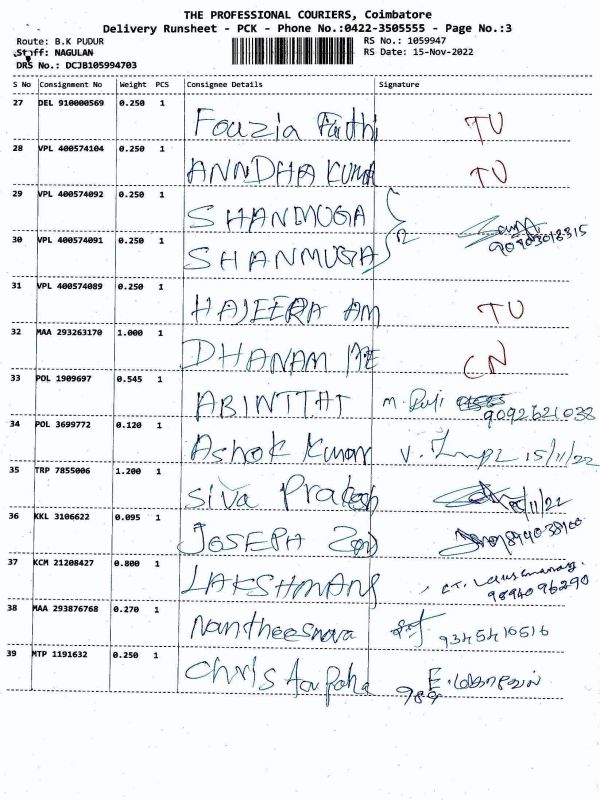 THE PROFESSIONAL COURIERS, Coimbatore
Delivery Runsheet - PCK - Phone No.:0422-3505555 - Page No.:3
Route: B.K PUDUR
RS No.: 1059947
Staff: NAGULAN
RS Date: 15-Nov-2022
DRS No.: DCJB105994703
S No Consignment No Weight PCS Consignee Details Signature
27 DEL 910000569 0.250 1 Fouzia Fathi TU
28 VPL 400574104 0.250 1 ANNDHA KUMA TU
29 VPL 400574092 0.250 1 SHANMUGA
30 VPL 400574091 0.250 1 SHANMUGA
31 VPL 400574089 0.250 1 HAJEERA AM TU
32 MAA 293263170 1.000 1 DHANAM ME CN
33 POL 1909697 0.545 1 ABINTTAT 9092621038
34 POL 3699772 0.120 1 Ashok Kumar V. 15/11/22
35 TRP 7855006 1.200 1 Siva Pradesh
36 KKL 3106622 0.095 1 JOSEPH
37 KCM 21208427 0.800 1 LAKSHMANS 9894096290
38 MAA 293876768 0.270 1 Nantheeswara 9345410516
39 MTP 1191632 0.250 1 Chris